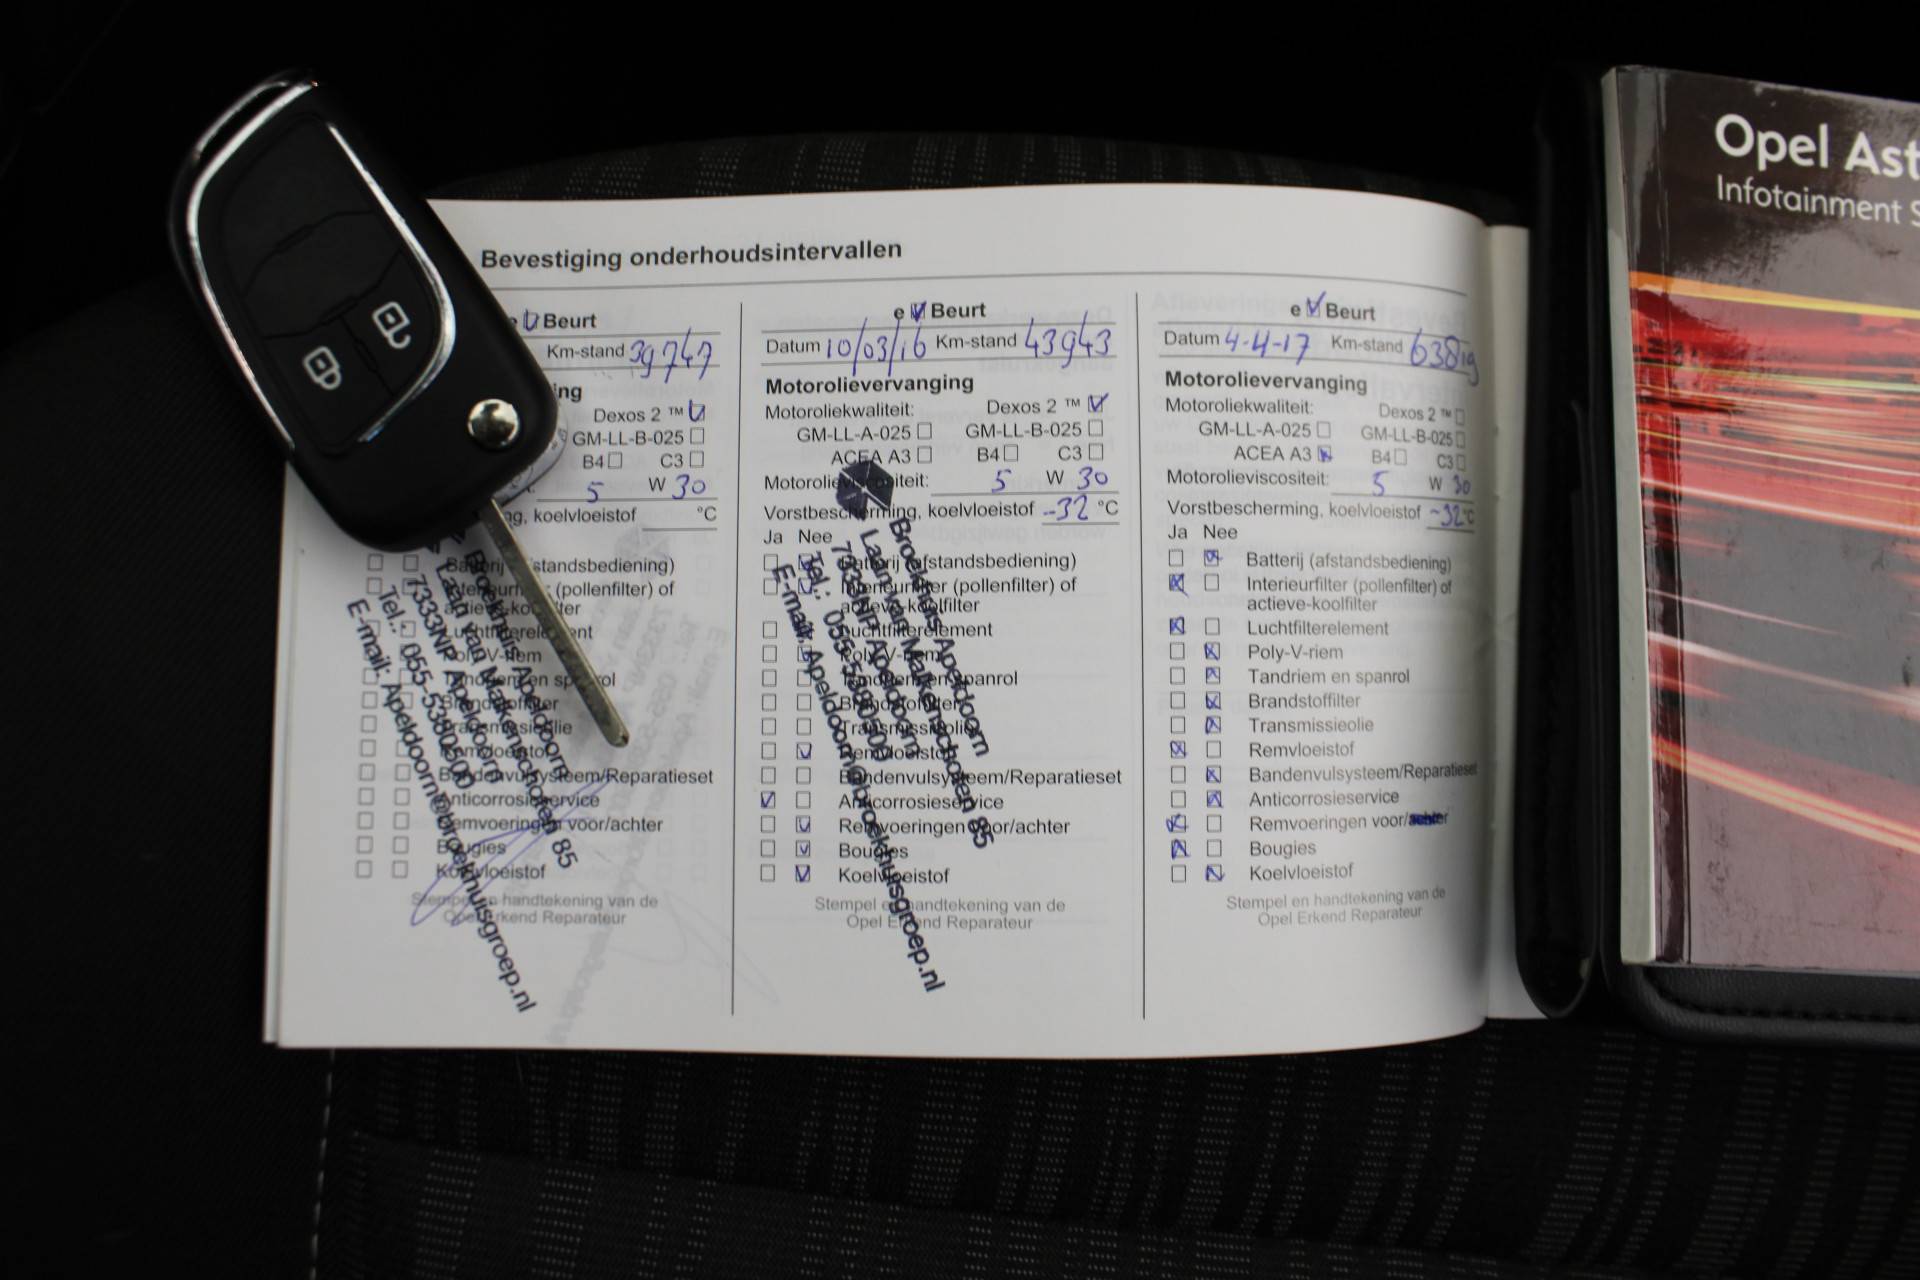 Bevestiging onderhoudsintervallen
Beurt
Km-stand 39747
ng
Dexos 2 ™
GM-LL-B-025
B4 C3
5 W 30
ng, koelvloeistof °C
Batterij standsbediening)
Interieurfilter (pollenfilter) of
actieve-koolfilter
Luchtfilterelement
Poly-V-riem
Tandriem en spanrol
Brandstoffilter
Transmissieolie
Remvloeistof
Bandenvulsysteem/Reparatieset
Anticorrosieservice
Remvoeringen voor/achter
Bougies
Koelvloeistof
Stempel en handtekening van de
Opel Erkend Reparateur
Broekhuis Apeldoorn
Laan van Malkenschoten 85
7333NP Apeldoorn
Tel.: 055-5380500
E-mail: Apeldoorn@broekhuisgroep.nl
e Beurt
Datum 10/03/16 Km-stand 43943
Motorolievervanging
Motoroliekwaliteit: Dexos 2 ™
GM-LL-A-025 GM-LL-B-025
ACEA A3 B4 C3
Motorolieviscositeit: 5 W 30
Vorstbescherming, koelvloeistof -32 °C
Ja Nee
Batterij (afstandsbediening)
Interieurfilter (pollenfilter) of
actieve-koolfilter
Luchtfilterelement
Poly-V-riem
Tandriem en spanrol
Brandstoffilter
Transmissieolie
Remvloeistof
Bandenvulsysteem/Reparatieset
Anticorrosieservice
Remvoeringen voor/achter
Bougies
Koelvloeistof
Stempel en handtekening van de
Opel Erkend Reparateur
Broekhuis Apeldoorn
Laan van Malkenschoten 85
7333NP Apeldoorn
Tel.: 055-5380500
E-mail: Apeldoorn@broekhuisgroep.nl
e Beurt
Datum 4-4-17 Km-stand 63819
Motorolievervanging
Motoroliekwaliteit: Dexos 2 ™
GM-LL-A-025 GM-LL-B-025
ACEA A3 B4 C3
Motorolieviscositeit: 5 W 30
Vorstbescherming, koelvloeistof -32°C
Ja Nee
Batterij (afstandsbediening)
Interieurfilter (pollenfilter) of
actieve-koolfilter
Luchtfilterelement
Poly-V-riem
Tandriem en spanrol
Brandstoffilter
Transmissieolie
Remvloeistof
Bandenvulsysteem/Reparatieset
Anticorrosieservice
Remvoeringen voor/achter
Bougies
Koelvloeistof
Stempel en handtekening van de
Opel Erkend Reparateur
Opel Ast
Infotainment S